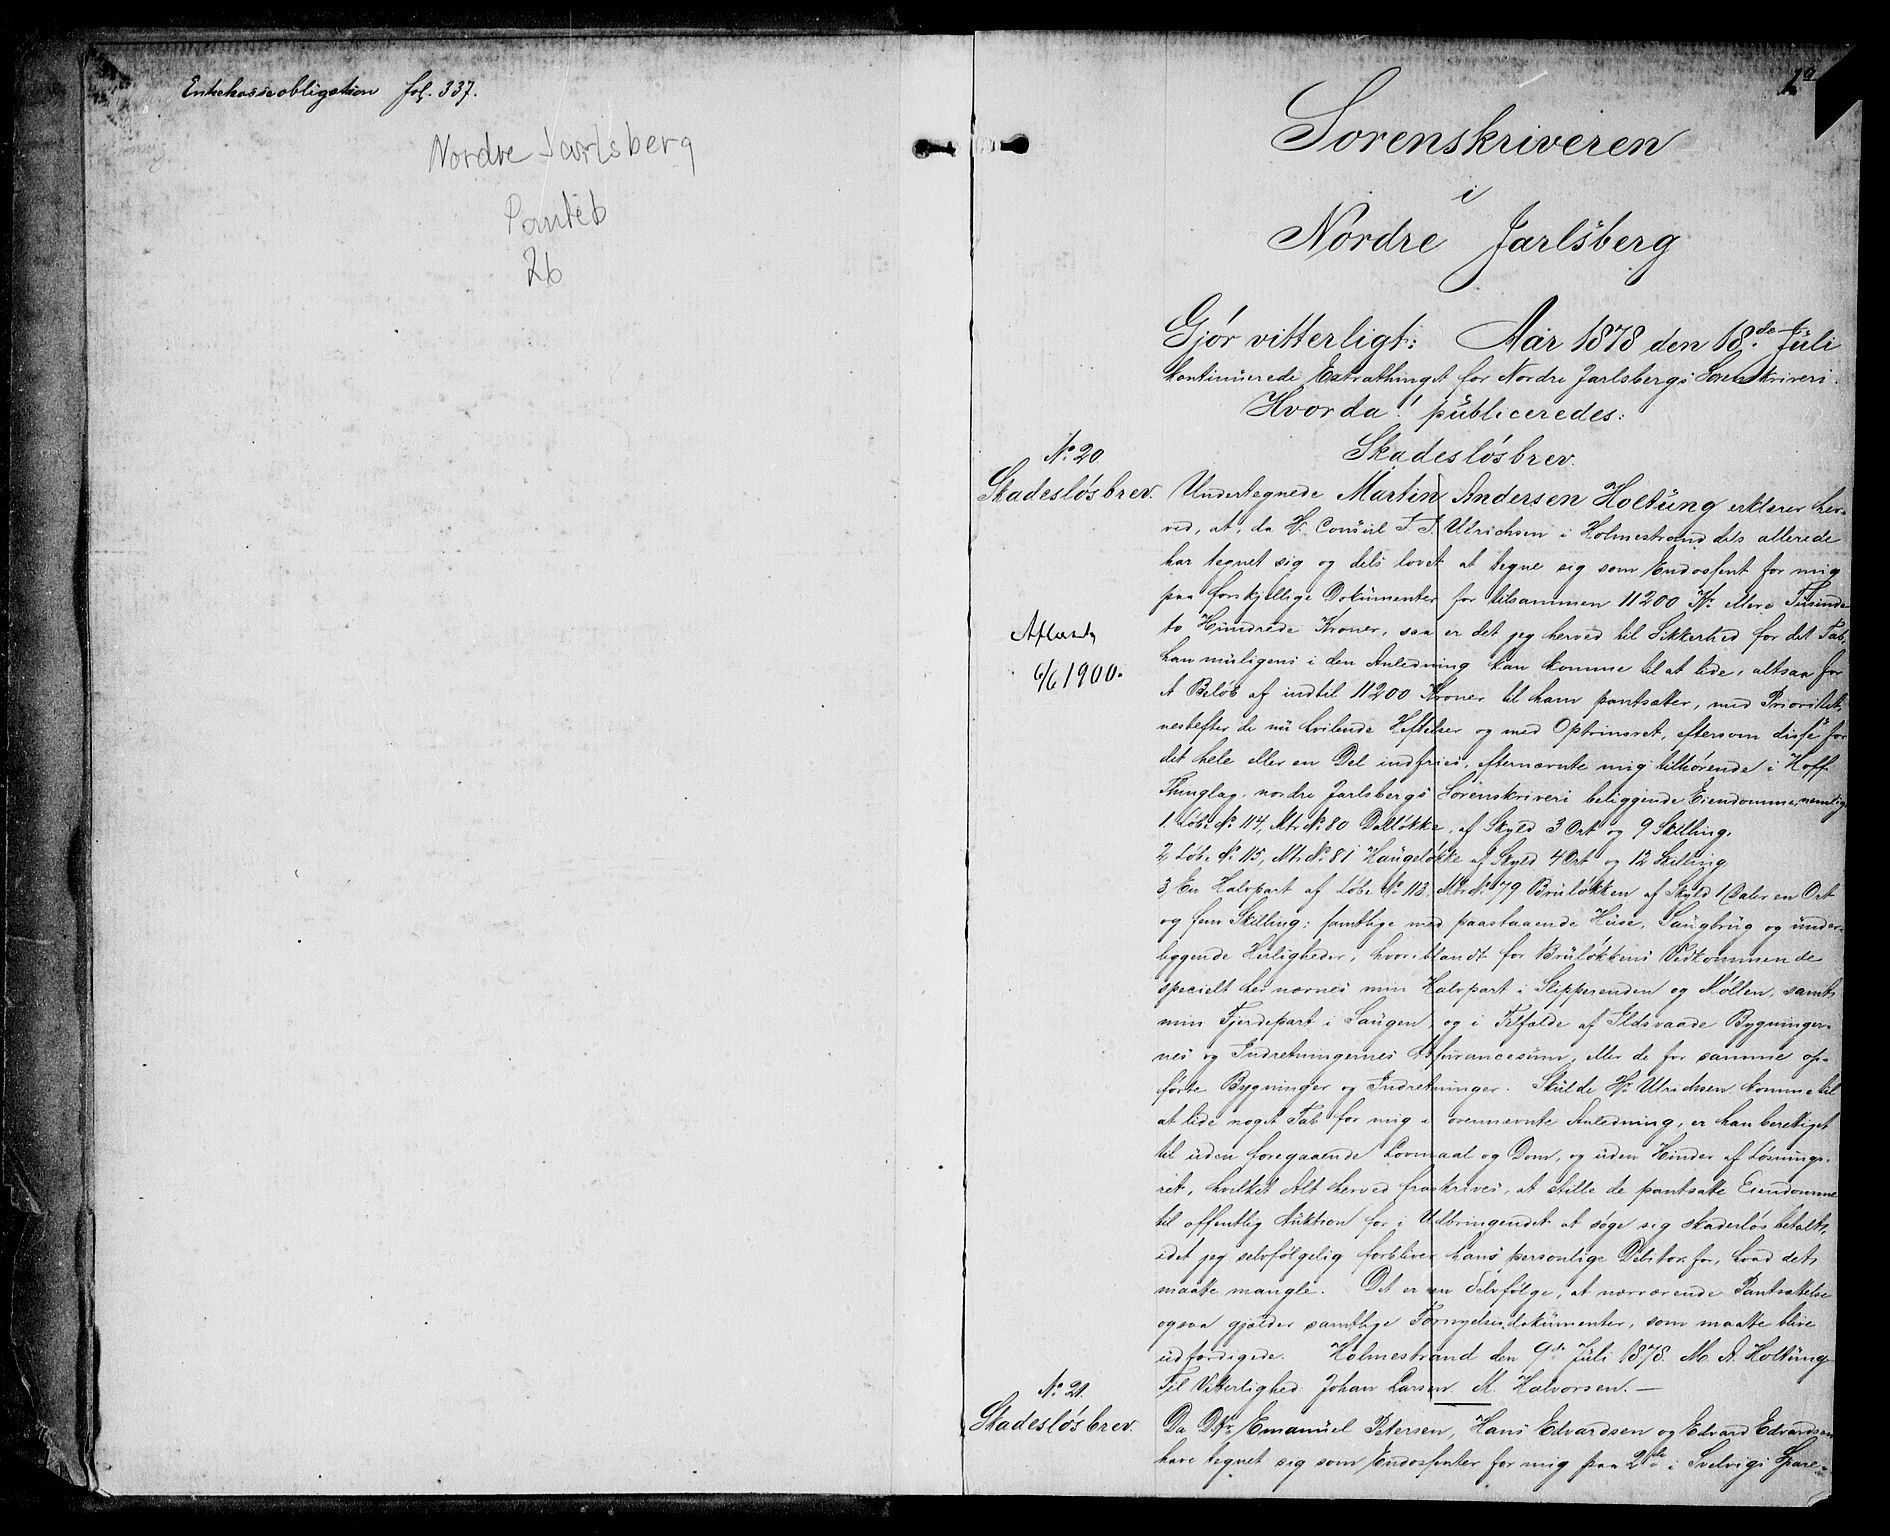 Enkekasseobligation fol. 337.
Nordre Jarlsberg
Panteb
26
1a
Sorenskriveren
i
Nordre Jarlsberg
Gjør vitterligt: Aar 1878 den 18de Juli
kontinuerede Extrathinget for Nordre Jarlsbergs Sorenskriveri.
Hvorda! publiceredes:
Skadesløsbrev.
No. 20.
Skadesløsbrev.
Undertegnede Martin Andersen Holtung erklærer her-
ved, at, da Hr. Consul J. J. Ulrichsen i Holmestrand dels allerede
har tegnet sig og dels lovet at tegne sig som Endossent for mig
paa forskjellige Dokumenter for tilsammen 11200 Kr. elleve Tusinde
to Hundrede Kroner, saa er det jeg herved til Sikkerhed for det Tab,
han muligens i den Anledning kan komme til at lide, altsaa for
et Beløb af indtil 11200 Kroner til ham pantsætter, med Prioritet
næstefter de nu hvilende Heftelser og med Optrinsret, eftersom disse for
det hele eller en Del indfries, efternævnte mig tilhørende i Hoff
Thinglag, nordre Jarlsbergs Sorenskriveri beliggende Eiendomme, nemlig
1. Løbe No. 114, Mtr. No. 80 Dalløkke, af Skyld 3 Ort og 9 Skilling,
2 Løbe No. 115, Mtr. No. 81 Haugeløkke af Skyld 4 Ort og 12 Skilling
3 En Halvpart af Løbe No. 113, Mtr. No. 79 Bruløkken af Skyld 1 Daler en Ort
og fem Skilling; samtlige med paastaaende Huse, Saugbrug og under-
liggende Herligheder, hvoriblandt for Bruløkkens Vedkommende
specielt her nævnes min Halvpart i Slipperenden og Møllen, samt
min Fjerdepart i Saugen, og i Tilfælde af Ildsvaade Bygninger-
nes og Indretningernes Assurancesum, eller de for samme op-
førte Bygninger og Indretninger. Skulde Hr. Ulrichsen komme til
at lide noget Tab for mig i ovennævnte Anledning, er han berettiget
til uden foregaaende Lovmaal og Dom, og uden Hinder af Løsnings-
ret, hvilket Alt herved fraskrives, at stille de pantsatte Eiendomme
til offentlig Auktion for i Udbringendet at søge sig skadesløs betalt,
idet jeg selvfølgelig forbliver hans personlige Debitor for, hvad det
maatte mangle. Det er en Selvfølge, at nærværende Pantsættelse
ogsaa gjælder samtlige Fornyelsesdokumenter, som maatte blive
udfærdigede. Holmestrand den 9de Juli 1878. M. A. Holtung
Til Vitterlighed Johan Larsen. M. Halvorsen.
Aflæst
6/6 1900.
No. 21.
Skadesløsbrev.
Da Emanuel Petersen, Hans Edvardsen og Edvard Edvardsen
have tegnet sig som Endossenter for mig paa 2de i Svelvigs Spare-